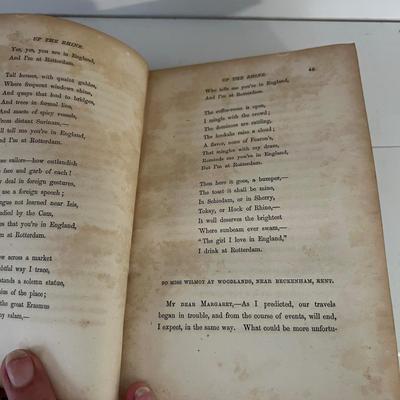 UP THE RHINE.
Yet, yet, you are in England,
And I'm at Rotterdam.
Tall houses, with quaint gables,
Where frequent windows shine,
And quays that lead to bridges,
And trees in formal line,
And masts of spicy vessels,
From distant Surinam,—
ll tell me you're in England,
nd I'm at Rotterdam.
se sailors—how outlandish
face and garb of each!
deal in foreign gestures,
use a foreign speech;
ngue not learned near Isis,
died by the Cam,
es that you're in England,
m at Rotterdam.
w across a market
btful way I trace,
stands a solemn statue,
ius of the place;
the great Erasmus
y salam,—
UP THE RHINE.
Who tells me you're in England,
And I'm at Rotterdam.
The coffee-room is open,
I mingle with the crowd;
The dominoes are rattling,
The hookahs raise a cloud;
A flavor, none of Fearon's,
That mingles with my dram,
Reminds me you're in England,
But I'm at Rotterdam.
Then here it goes, a bumper,—
The toast it shall be mine,
In Schiedam, or in Sherry,
Tokay, or Hock of Rhine,—
It well deserves the brightest
Where sunbeam ever swam,—
"The girl I love in England,"
I drink at Rotterdam.
TO MISS WILMOT AT WOODLANDS, NEAR BECKENHAM, KENT.
MY DEAR MARGARET,—As I predicted, our travels
began in trouble, and from the course of events, will end,
I expect, in the same way. What could be more unfortu-